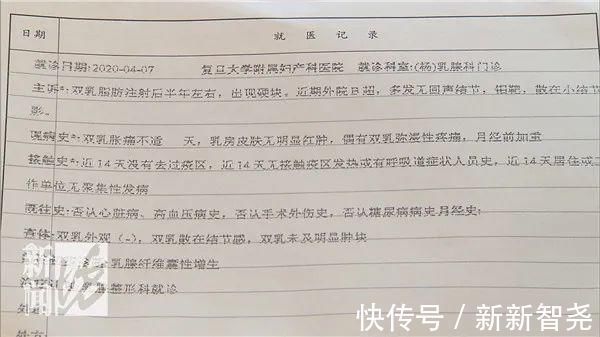 日期 就 医 记 录
就诊日期:2020-04-07 复旦大学附属妇产科医院 就诊科室:(杨)乳腺科门诊
主诉*:双乳脂肪注射后半年左右，出现硬块。近期外院B超，多发无回声结节，钼靶，散在小结节
影。
现病史*:双乳胀痛不适 天，乳房皮肤无明显红肿，偶有双乳弥漫性疼痛，月经前加重
接触史*:近14天没有去过疫区，近14天无接触疫区发热或有呼吸道症状人员史，近14天居住或工
作单位无聚集性发病
既往史:否认心脏病、高血压病史，否认手术外伤史，否认糖尿病病史月经史:
查体:双乳外观（-），双乳散在结节感，双乳未及明显肿块
乳腺纤维囊性增生
整形科就诊
新闻
快传号 / 新新智尧